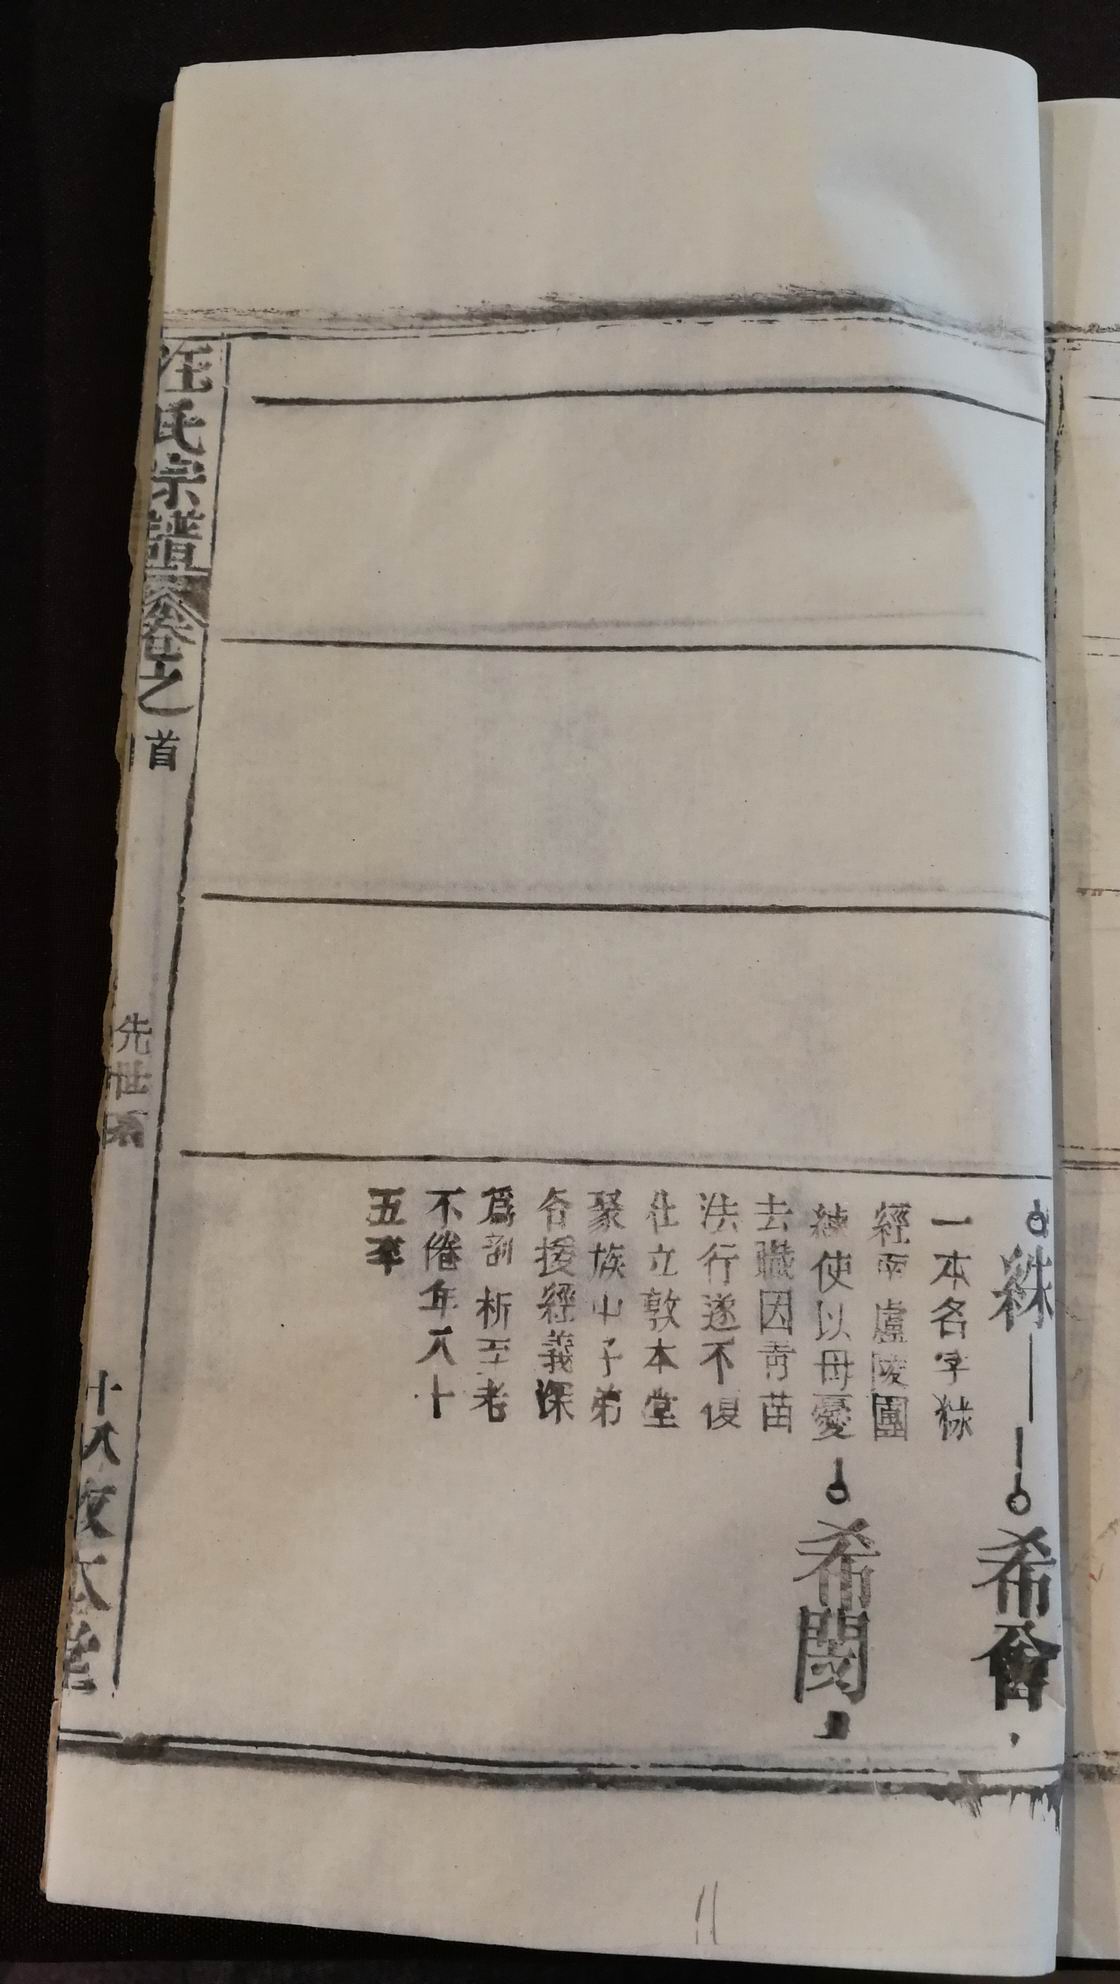 希曾
一本名字
經 廬陵團
練使以母憂
去職因青苗
法行遂不復
仕立敦本堂
聚族中子弟
各授經義深
爲剖析至老
不倦年八十
五卒
希閔
汪氏宗譜
卷之首
先世系
十八 敦本堂